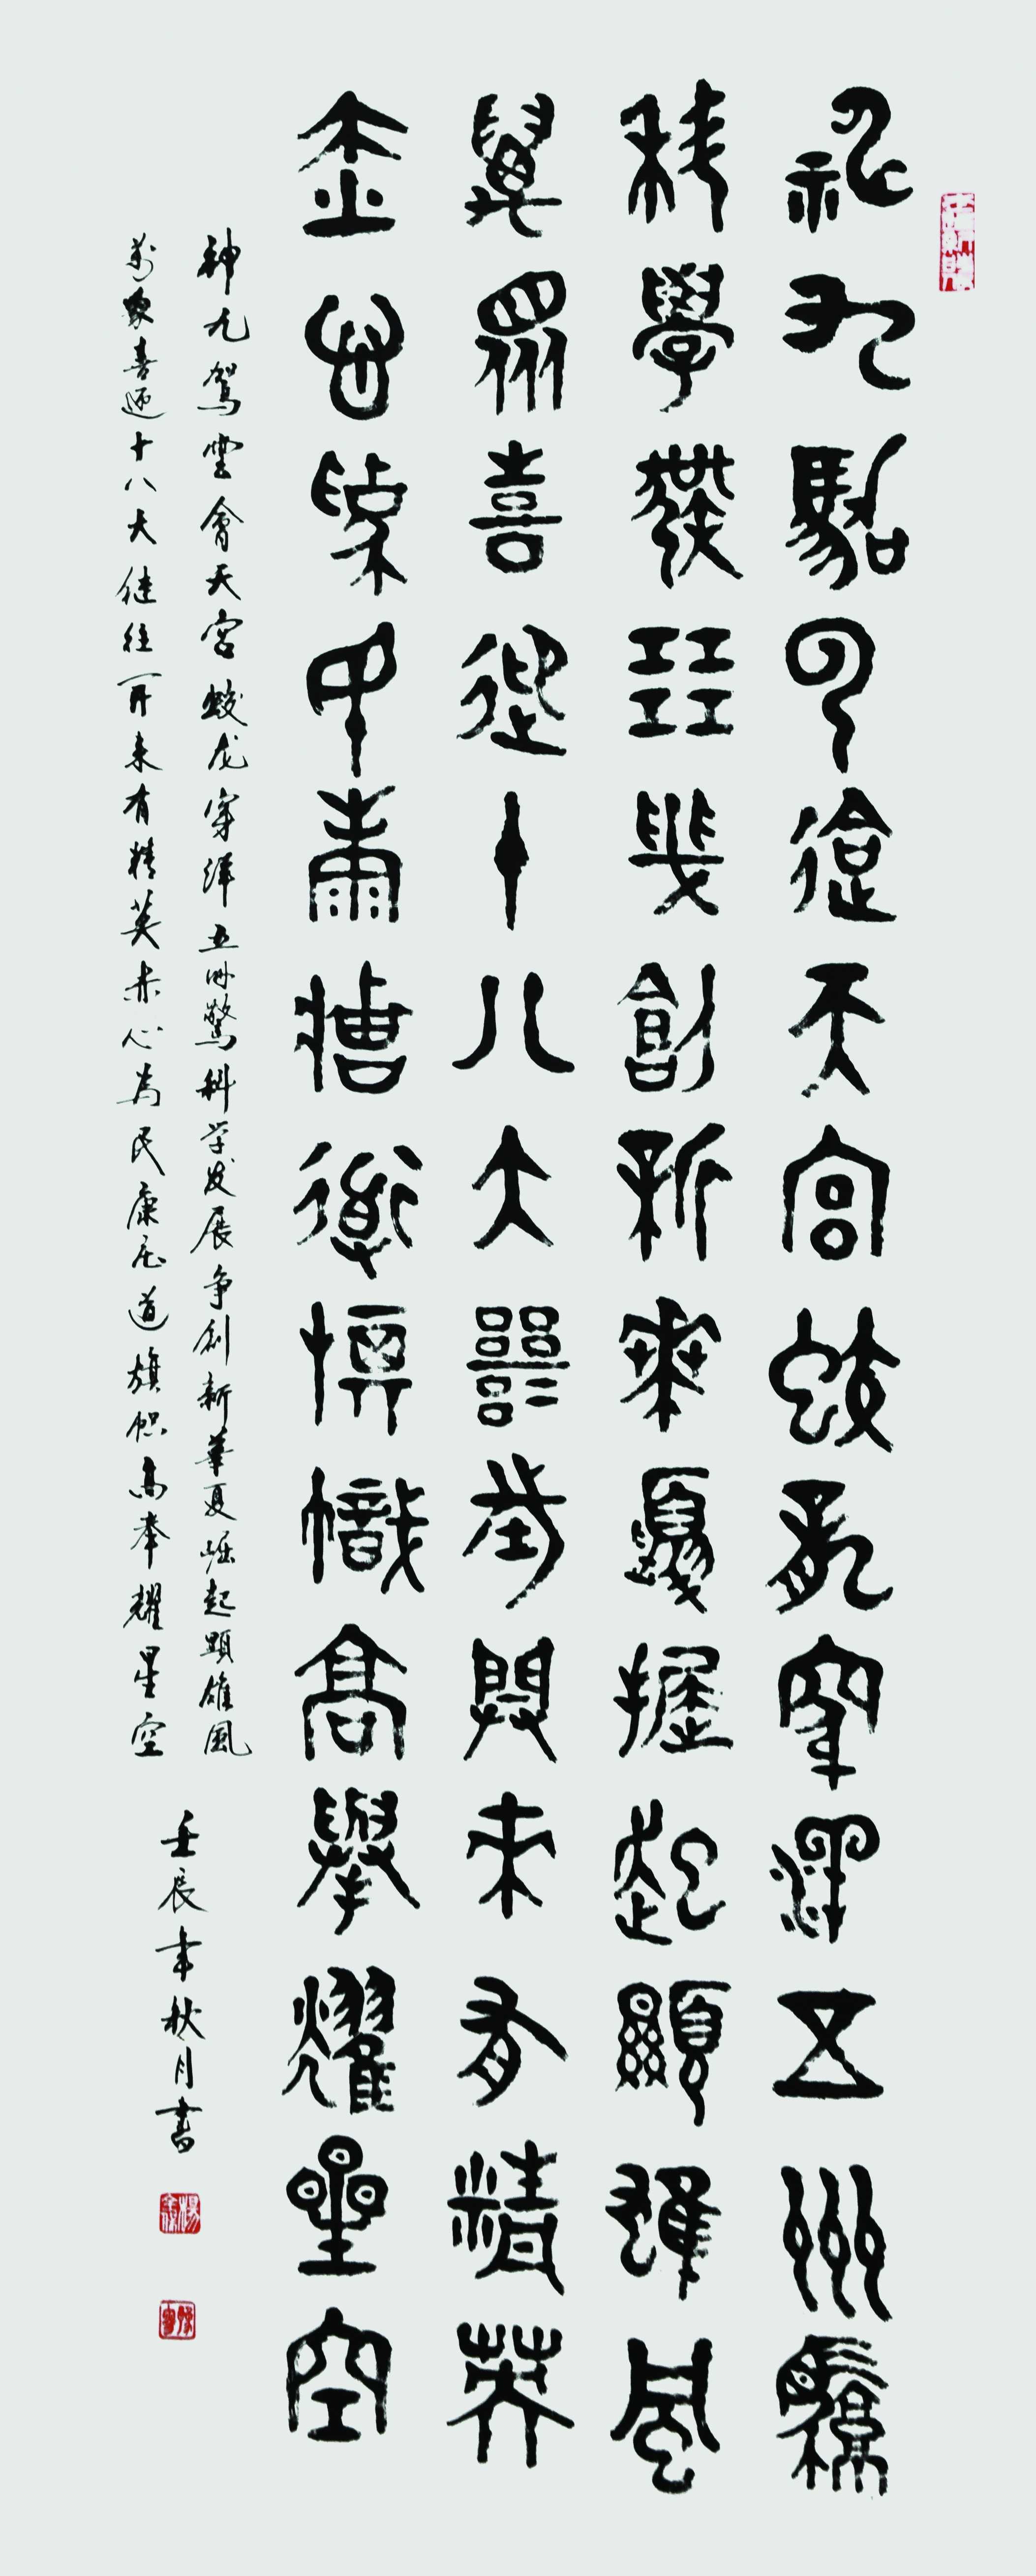 神九駕雲會天宮蛟龍穿洋五洲驚
科學發展爭創新華夏崛起顯雄風
萬眾喜迎十八大繼往開來有精英
赤心為民康莊道旗幟高舉耀星空
神九駕雲會天宮蛟龙穿洋五州驚科学发展争创新華夏崛起顯雄風
萬象喜迎十八大继往開来有精英赤心為民康庄道旗帜高举耀星空
壬辰年秋月書